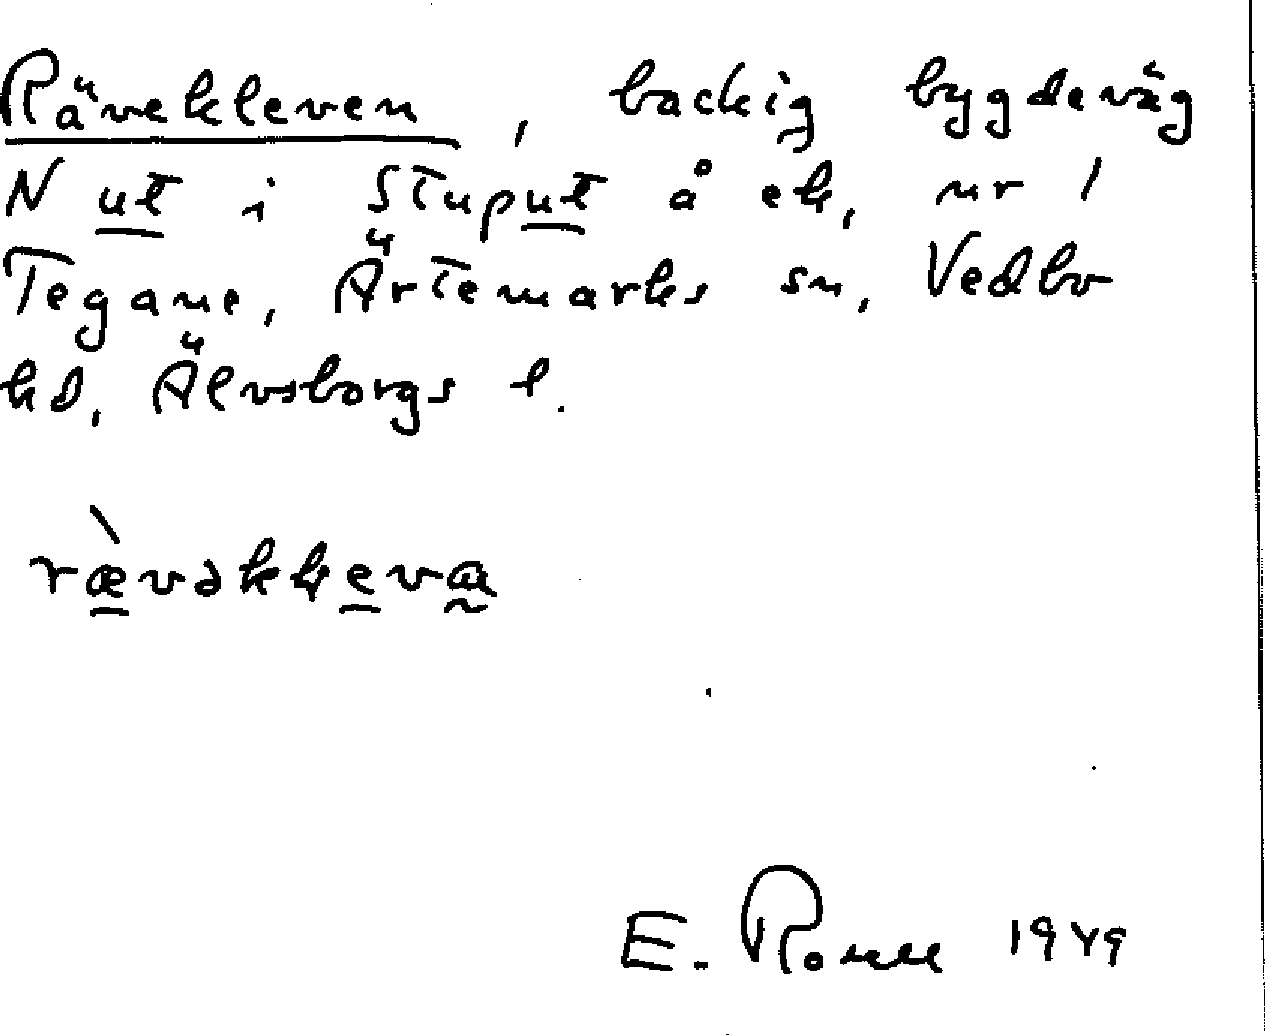 Rävekleven, backig bygdeväg
N ut i Stuput å ek, nr 1
Tegane, Ärtemarks sn, Vedbo
hd, Älvsborgs l.
rævəkleva
E. 1949